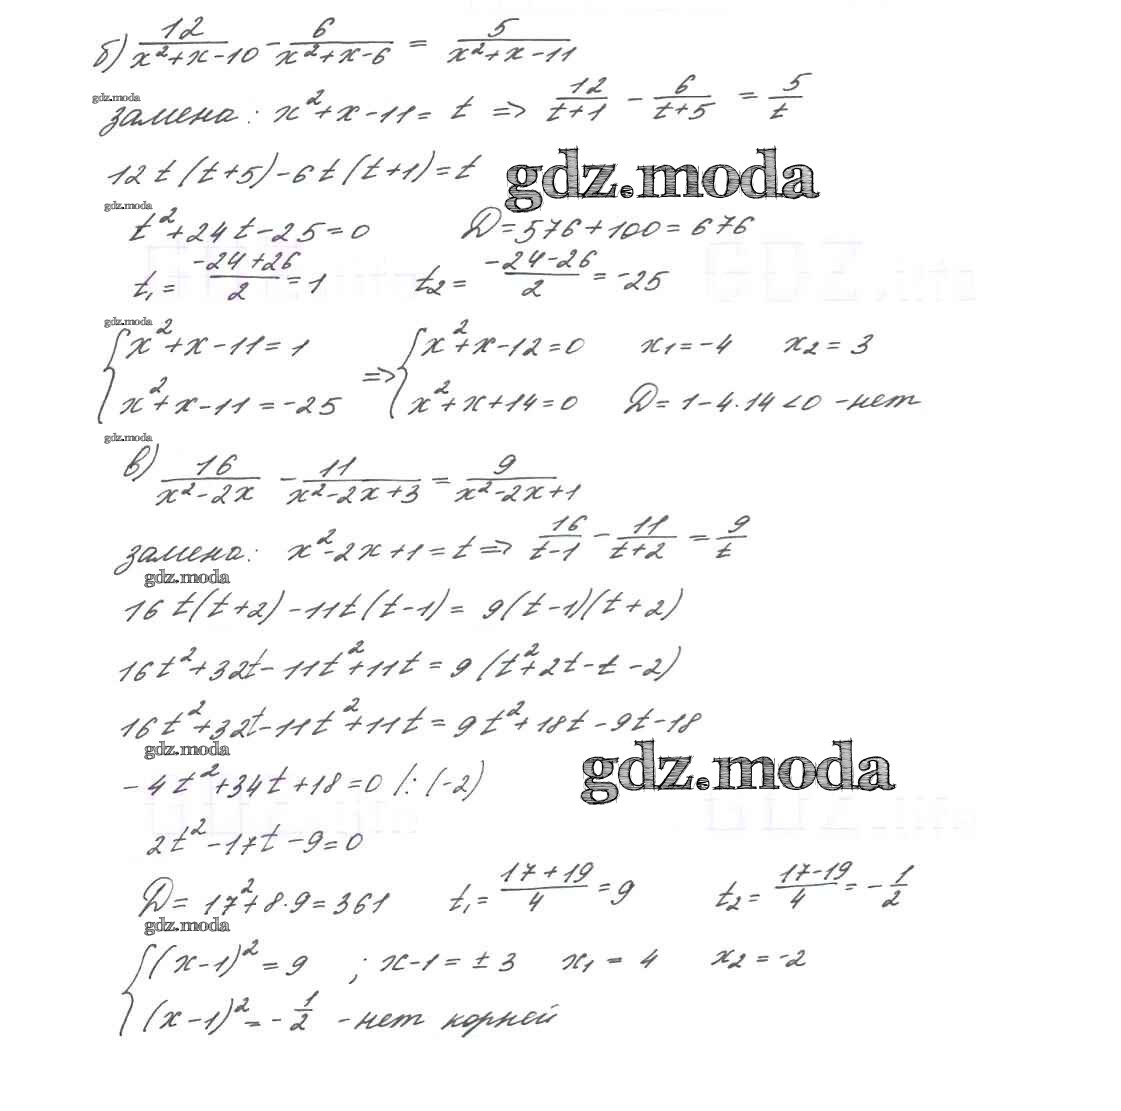 б) 12/(x²+x-10) - 6/(x²+x-6) = 5/(x²+x-11)
gdz.moda
замена: x²+x-11 = t => 12/(t+1) - 6/(t+5) = 5/t
12t(t+5)-6t(t+1)=t
gdz.moda
gdz.moda
t²+24t-25=0 D=576+100=676
GDZ.life GDZ.life
t₁= (-24+26)/2 =1 t₂= (-24-26)/2 = -25
gdz.moda
{x²+x-11=1 => {x²+x-12=0 x₁=-4 x₂=3
x²+x-11=-25 x²+x+14=0 D=1-4·14<0 -нет
gdz.moda
в) 16/(x²-2x) - 11/(x²-2x+3) = 9/(x²-2x+1)
замена: x²-2x+1=t => 16/(t-1) - 11/(t+2) = 9/t
gdz.moda
16t(t+2)-11t(t-1)= 9(t-1)(t+2)
16t²+32t-11t²+11t=9(t²+2t-t-2)
16t²+32t-11t²+11t=9t²+18t-9t-18
gdz.moda
gdz.moda
-4t²+34t+18=0 /:(-2)
GDZ.life GDZ.life
2t²-17t-9=0
D= 17²+8·9=361 t₁= (17+19)/4 =9 t₂= (17-19)/4 = -1/2
gdz.moda
{(x-1)²=9 ; x-1=±3 x₁=4 x₂=-2
(x-1)²=-1/2 -нет корней